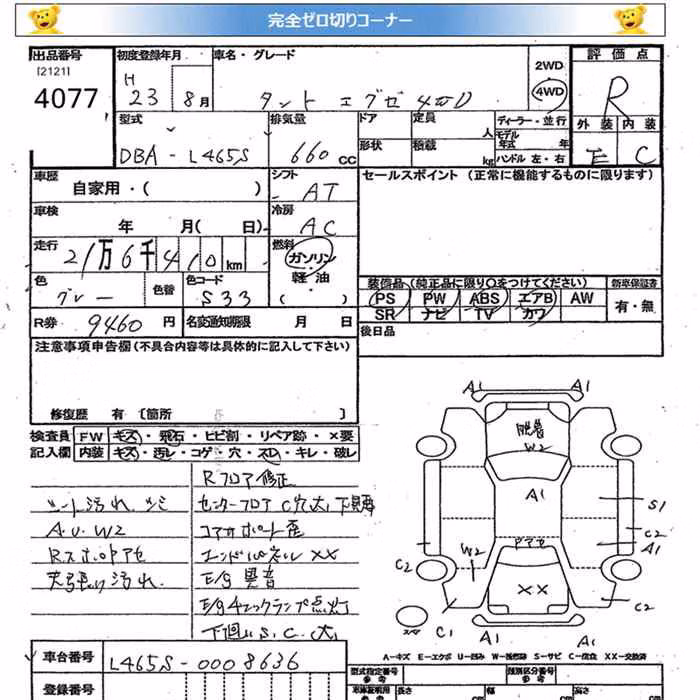 完全ゼロ切りコーナー
出品番号
[2121]
4077
初度登録年月
H 23 8月
車名・グレード
タント エグゼ 4WD
2WD
4WD
評価点
R
外装 内装
E C
型式
DBA - L465S
排気量
660 cc
ドア
定員
人
形状
積載
kg
ディーラー・並行
モデル年式 年
ハンドル 左・右
車歴
自家用・( )
シフト
AT
セールスポイント (正常に機能するものに限ります)
車検
年 月( 日)
冷房
AC
走行
21万6千410km
燃料
ガソリン
軽油
( )
色
グレー
色替
色コード
S33
装備品 (純正品に限り○をつけてください)
新車保証書
PS PW ABS エアB AW
SR ナビ TV カワ
有・無
R券
9460円
名変通知期限 月 日
後日品
注意事項申告欄 (不具合内容等は具体的に記入して下さい)
修復歴 有 [箇所 ]
検査員記入欄
FW キズ・飛石・ヒビ割・リペア跡・×要
内装 キズ・汚レ・コゲ・穴・スレ・キレ・破レ
Rフロア修正
シート汚れ シミ
センターフロア C穴大
A.U.W2
コアサポート歪
エンドパネル XX
天張り汚れ
E/g異音
E/gチェックランプ点灯
下廻りS.C.大
A1 A1
脱着
W2
A1
S1
C2
A1
ドアセ
W2
C2
XX
C2
C1
A1 A1
A-キズ E-エクボ U-凹み W-波修跡 S-サビ C-腐食 XX-交換済
車台番号
L465S-0008636
登録番号
型式指定番号
参考
類別区分番号
参考
長さ
幅
高さ